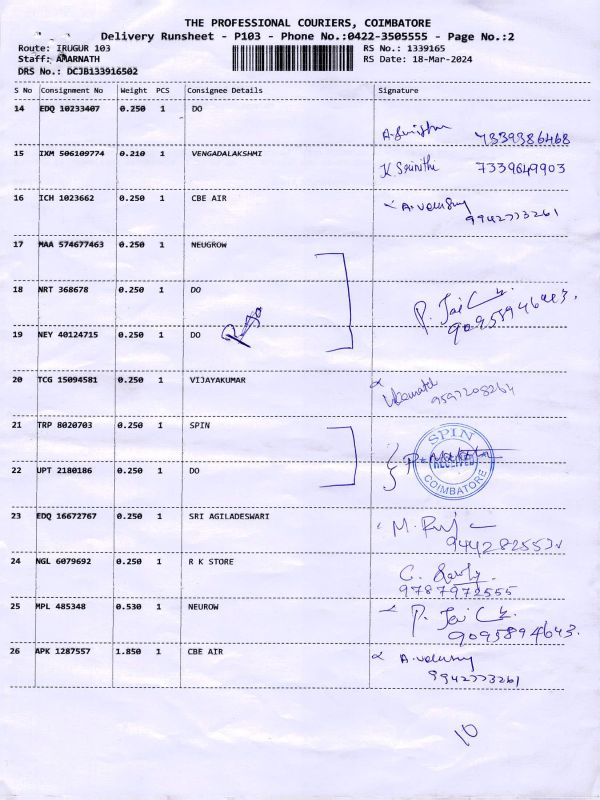 THE PROFESSIONAL COURIERS, COIMBATORE
Delivery Runsheet - P103 - Phone No.:0422-3505555 - Page No.:2
Route: IRUGUR 103 RS No.: 1339165
Staff: AMARNATH RS Date: 18-Mar-2024
DRS No.: DCJB133916502
S No Consignment No Weight PCS Consignee Details Signature
14 EDQ 10233407 0.250 1 DO
7339386468
15 IXM 506109774 0.210 1 VENGADALAKSHMI
K Srinithi 7339649903
16 ICH 1023662 0.250 1 CBE AIR
9942773261
17 MAA 574677463 0.250 1 NEUGROW
18 NRT 368678 0.250 1 DO
P. Jai
19 NEY 40124715 0.250 1 DO
20 TCG 15094581 0.250 1 VIJAYAKUMAR
9597208264
21 TRP 8020703 0.250 1 SPIN
SPIN
RECEIVED
COIMBATORE
22 UPT 2180186 0.250 1 DO
23 EDQ 16672767 0.250 1 SRI AGILADESWARI
M.
24 NGL 6079692 0.250 1 R K STORE
9787972555
25 MPL 485348 0.530 1 NEUROW
P. Jai
9095894643.
26 APK 1287557 1.850 1 CBE AIR
9942773261
10